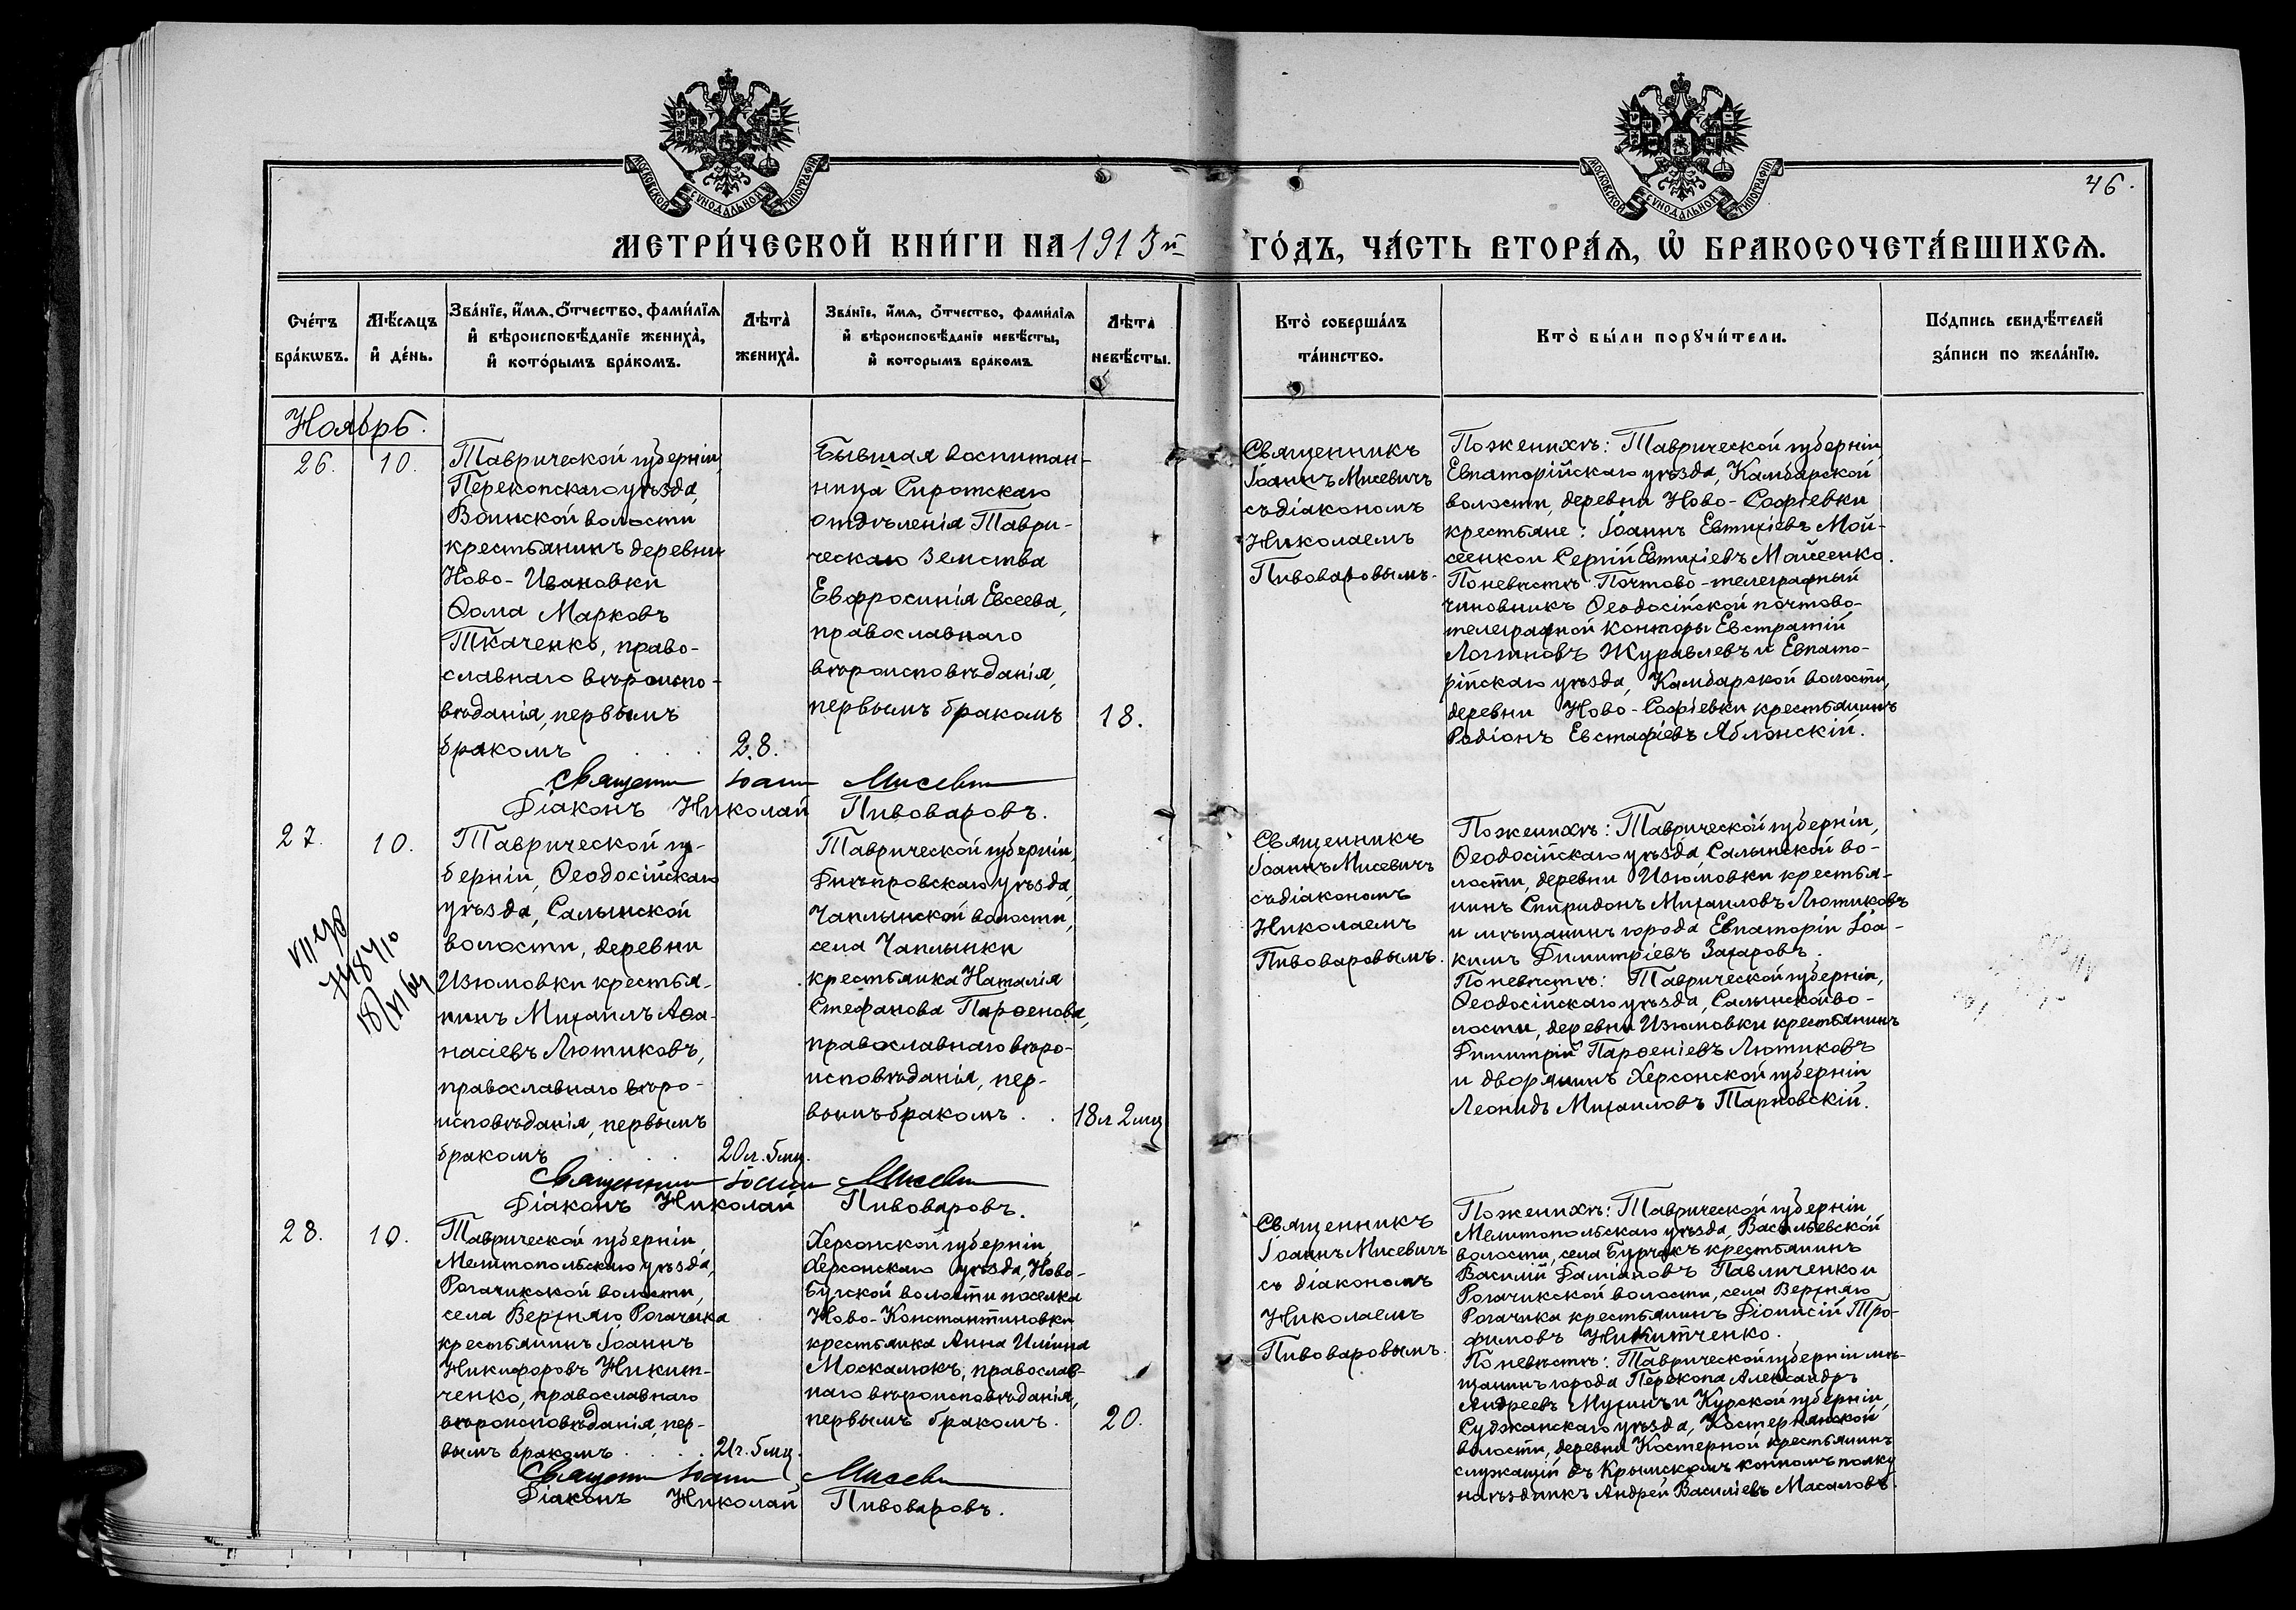 МОСКОВСКОЙ СѴНОДАЛЬНОЙ ТИПОГРАФІИ
МОСКОВСКОЙ СѴНОДАЛЬНОЙ ТИПОГРАФІИ
46.
МЕТРИ́ЧЕСКОЙ КНИ́ГИ НА 1913й
ГО́ДЪ, ЧА́СТЬ ВТОРА́Я, Ѡ БРАКОСОЧЕТА́ВШИХСЯ.
Сче́тъ
бра́кѡвъ.
Мѣ́сяцъ
и де́нь.
Зва́нїе, и́мя, о́тчество, фами́лїя
и вѣроисповѣ́данїе жениха̀,
и кото́рымъ бра́комъ.
Лѣта̀
жениха̀.
Зва́нїе, и́мя, о́тчество, фами́лїя
и вѣроисповѣ́данїе невѣ́сты,
и кото́рымъ бра́комъ
Лѣта̀
невѣ́сты.
Кто̀ соверша́лъ
та́инство.
Кто̀ бы́ли порꙋчи́тели.
По́дпись свидѣ́телей
за́писи по жела́нїю.
Ноябрь.
26.
10.
Таврической губерніи,
Перекопскаго уѣзда,
Воинской волости
крестьянинъ деревни
Ново-Ивановки
Ѳома Марковъ
Ткаченко, право-
славнаго вѣроиспо-
вѣданія, первымъ
бракомъ
28.
Бывшая воспитан-
ница Сиротскаго
отдѣленія Таври-
ческаго Земства
Евфросинія Евсеева,
православнаго
вѣроисповѣданія,
первымъ бракомъ
18.
Священникъ
Іоаннъ Мисевичъ
съ діакономъ
Николаемъ
Пивоваровымъ.
По женихѣ: Таврической губерніи,
Евпаторійскаго уѣзда, Камбарской
волости, деревни Ново-Софіевки
крестьяне: Іоаннъ Евтихіевъ Мой-
сеенко и Сергій Евтихіевъ Мойсеенко.
По невѣстѣ: Почтово-телеграфный
чиновникъ Ѳеодосійской почтово-
телеграфной конторы Евстратій
Логиновъ Журавлевъ и Евпато-
рійскаго уѣзда, Камбарской волости,
деревни Ново-Софіевки крестьянинъ
Родіонъ Евстафіевъ Яблонскій.
Священникъ Іоаннъ Мисевичъ
Діаконъ Николай Пивоваровъ.
27.
10.
Таврической гу-
берніи, Ѳеодосійскаго
уѣзда, Салынской
волости, деревни
Изюмовки крестья-
нинъ Михаилъ Аѳа-
насіевъ Лютиковъ,
православнаго вѣро-
исповѣданія, первымъ
бракомъ
20л. 5мц.
Таврической губерніи,
Днѣпровскаго уѣзда,
Чаплынской волости,
села Чаплынки
крестьянка Наталія
Стефанова Парѳенова,
православнаго вѣро-
исповѣданія, пер-
вымъ бракомъ.
18л 2мц
Священникъ
Іоаннъ Мисевичъ
съ діакономъ
Николаемъ
Пивоваровымъ.
По женихѣ: Таврической губерніи,
Ѳеодосійскаго уѣзда, Салынской во-
лости, деревни Изюмовки крестья-
нинъ Спиридонъ Михаиловъ Лютиковъ
и мѣщанинъ города Евпаторіи Іоа-
кимъ Димитріевъ Захаровъ.
По невѣстѣ: Таврической губерніи,
Ѳеодосійскаго уѣзда, Салынской во-
лости, деревни Изюмовки крестьянинъ
Димитрій Парѳеніевъ Лютиковъ
и дворянинъ Херсонской губерніи
Леонидъ Михаиловъ Тарновскій.
Священникъ Іоаннъ Мисевичъ
Діаконъ Николай Пивоваровъ.
28.
10.
Таврической губерніи,
Мелитопольскаго уѣзда,
Рогачикской волости,
села Верхняго Рогачика
крестьянинъ Іоаннъ
Никифоровъ Никит-
ченко, православнаго
вѣроисповѣданія, пер-
вымъ бракомъ
21г. 5мц.
Херсонской губерніи
Херсонскаго уѣзда, Ново-
Бугской волости поселка
Ново-Константиновки
крестьянка Анна Иліина
Москалюкъ, православ-
наго вѣроисповѣданія,
первымъ бракомъ.
20.
Священникъ
Іоаннъ Мисевичъ
съ діакономъ
Николаемъ
Пивоваровымъ.
По женихѣ: Таврической губерніи
Мелитопольскаго уѣзда, Васильевской
волости, села Бурчакъ крестьянинъ
Василій Даміановъ Павличенко и
Рогачикской волости, села Верхняго
Рогачика крестьянинъ Діонисій Тро-
фимовъ Никитченко.
По невѣстѣ: Таврической губерніи мѣ-
щанинъ города Перекопа Александръ
Андреевъ Мухинъ и Курской губерніи,
Суджанскаго уѣзда, Костернянской
волости, деревни Костерной крестьянинъ
служащій въ Крымскомъ конномъ полку
наѣздникъ Андрей Василіевъ Масаловъ.
Священникъ Іоаннъ Мисевичъ
Діаконъ Николай Пивоваровъ.